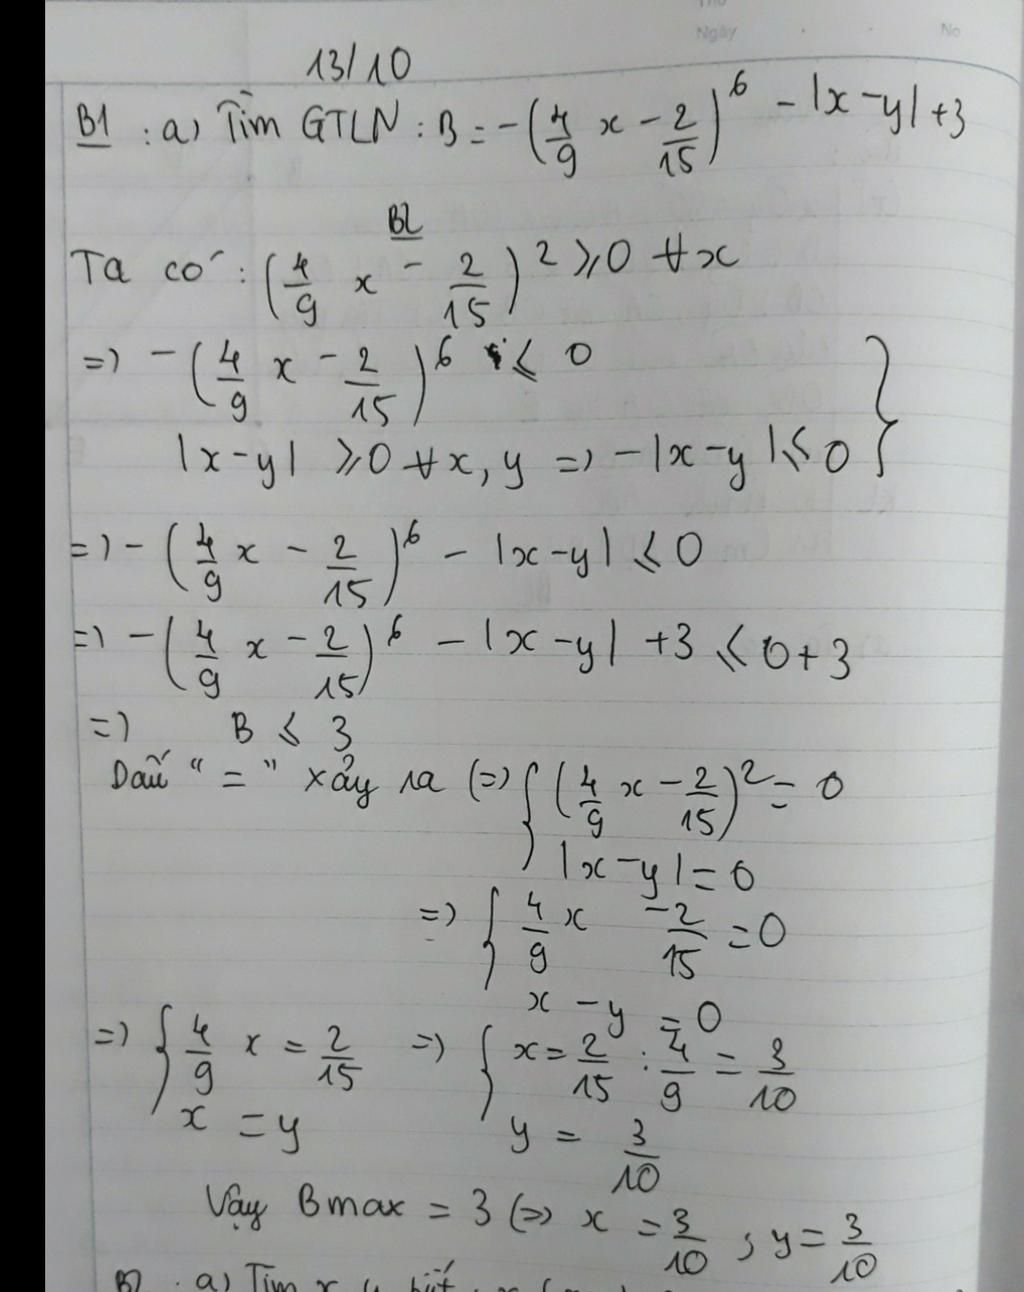 Thứ
Ngày No
13/10
B1 : a) Tìm GTLN : B = -(4/9 x - 2/15)^6 - |x - y| + 3
B2
Ta có : (4/9 x - 2/15)^2 ⩾ 0 ∀x
=) -(4/9 x - 2/15)^6 ⩽ 0
|x - y| ⩾ 0 ∀x, y =) -|x - y| ⩽ 0 }
=) -(4/9 x - 2/15)^6 - |x - y| ⩽ 0
=) -(4/9 x - 2/15)^6 - |x - y| + 3 ⩽ 0 + 3
=) B ⩽ 3
Dấu "=" xảy ra (=) { (4/9 x - 2/15)^2 = 0
|x - y| = 0
=) { 4/9 x - 2/15 = 0
x - y = 0
=) { 4/9 x = 2/15 =) { x = 2/15 : 4/9 = 3/10
x = y y = 3/10
Vậy Bmax = 3 (=) x = 3/10 ; y = 3/10
B2 : a) Tìm x